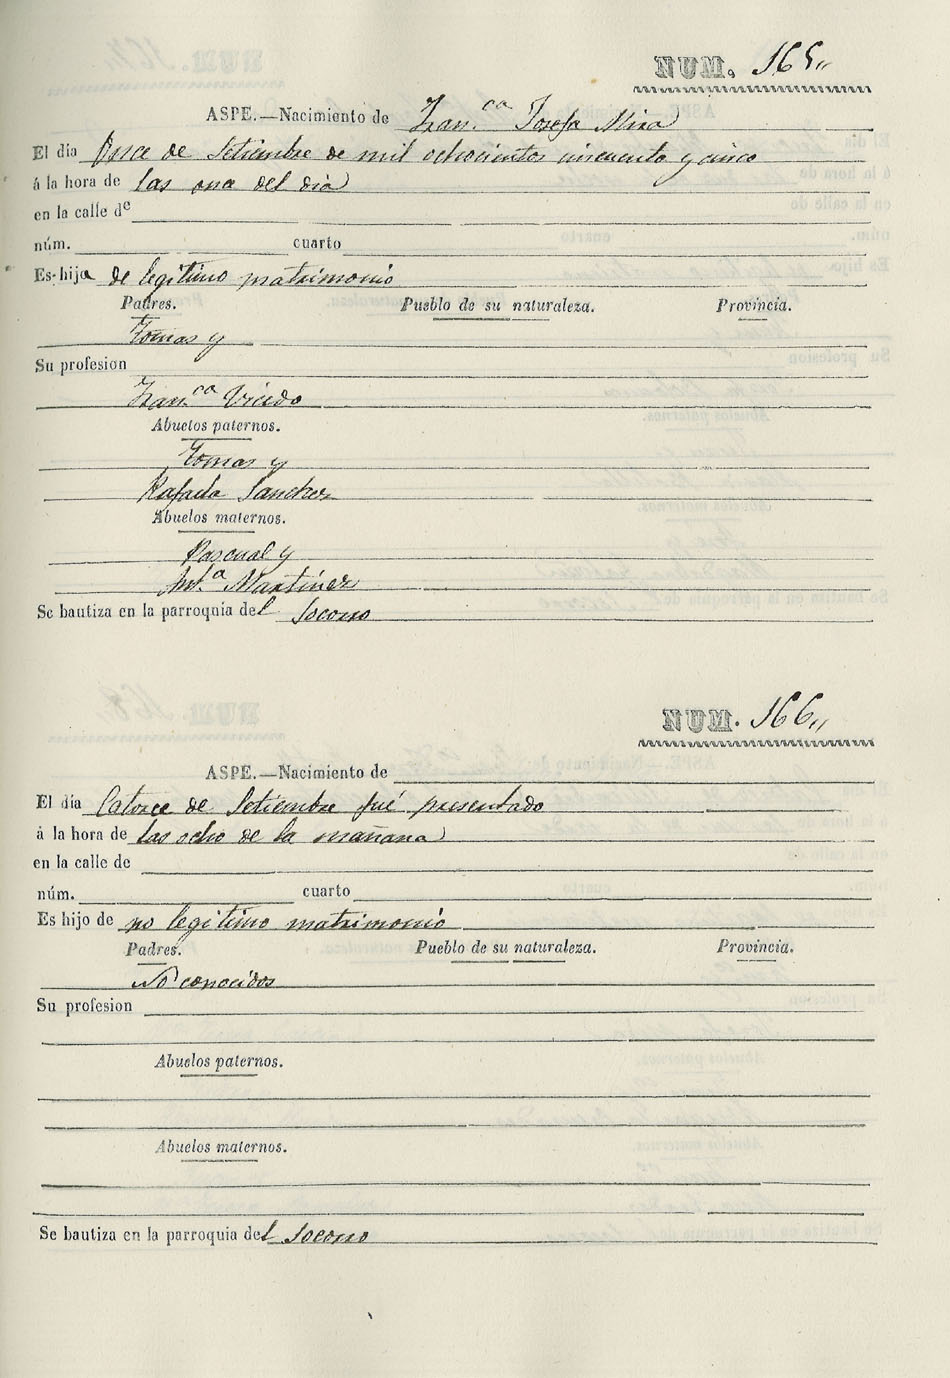 NUM. 165,,
ASPE.—Nacimiento de Fran.ca Josefa Mira
El día Once de Setiembre de mil ochocientos cincuenta y cinco
á la hora de las ona del dia
en la calle de
núm. cuarto
Es hija de legitimo matrimonio
Padres. Pueblo de su naturaleza. Provincia.
Tomas y
Su profesion
Fran.ca Vicedo
Abuelos paternos.
Tomas y
Rafaela Sanchez
Abuelos maternos.
Pascual y
Ant.a Martinez
Se bautiza en la parroquia del Socorro
NUM. 166,,
ASPE.—Nacimiento de
El día Catorce de Setiembre fué presentado
á la hora de las ocho de la mañana
en la calle de
núm. cuarto
Es hijo de no legitimo matrimonio
Padres. Pueblo de su naturaleza. Provincia.
No conocidos
Su profesion
Abuelos paternos.
Abuelos maternos.
Se bautiza en la parroquia del Socorro